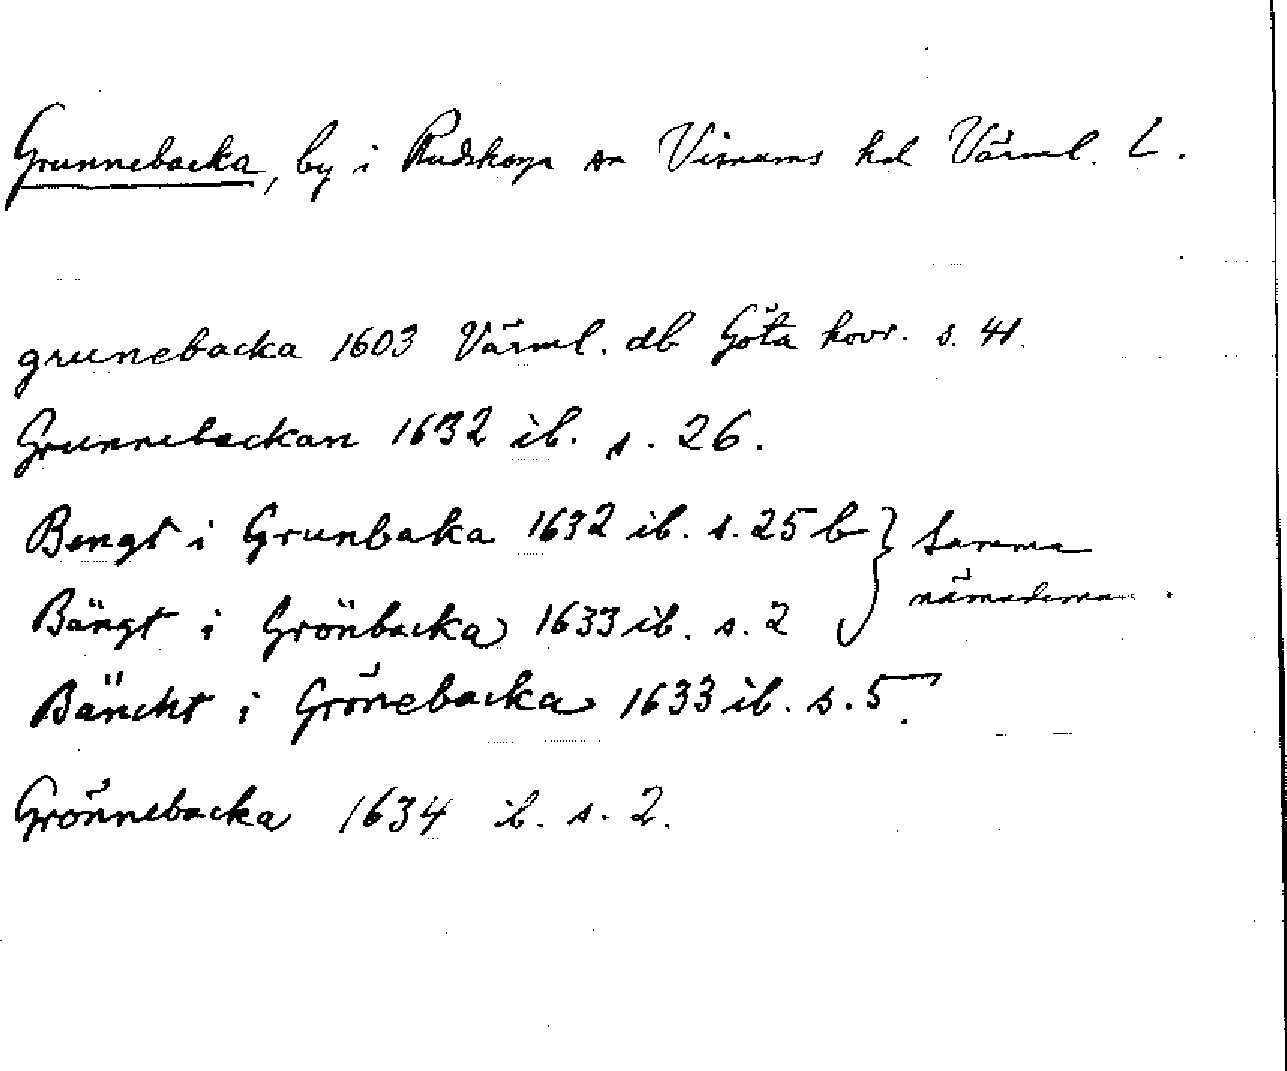 Grunnebacka, by i Rudskoga sn Visnums hd Värml. L.
grunebacka 1603 Värml. db Göta hovr. s. 41.
Grunnebackan 1632 ib. s. 26.
Bengt i Grunbaka 1632 ib. s. 25 b } Samma
nämndeman.
Bängt i Grönbacka 1633 ib. s. 2
Bäncht i Grönebacka 1633 ib. s. 5.
Grönnebacka 1634 ib. s. 2.